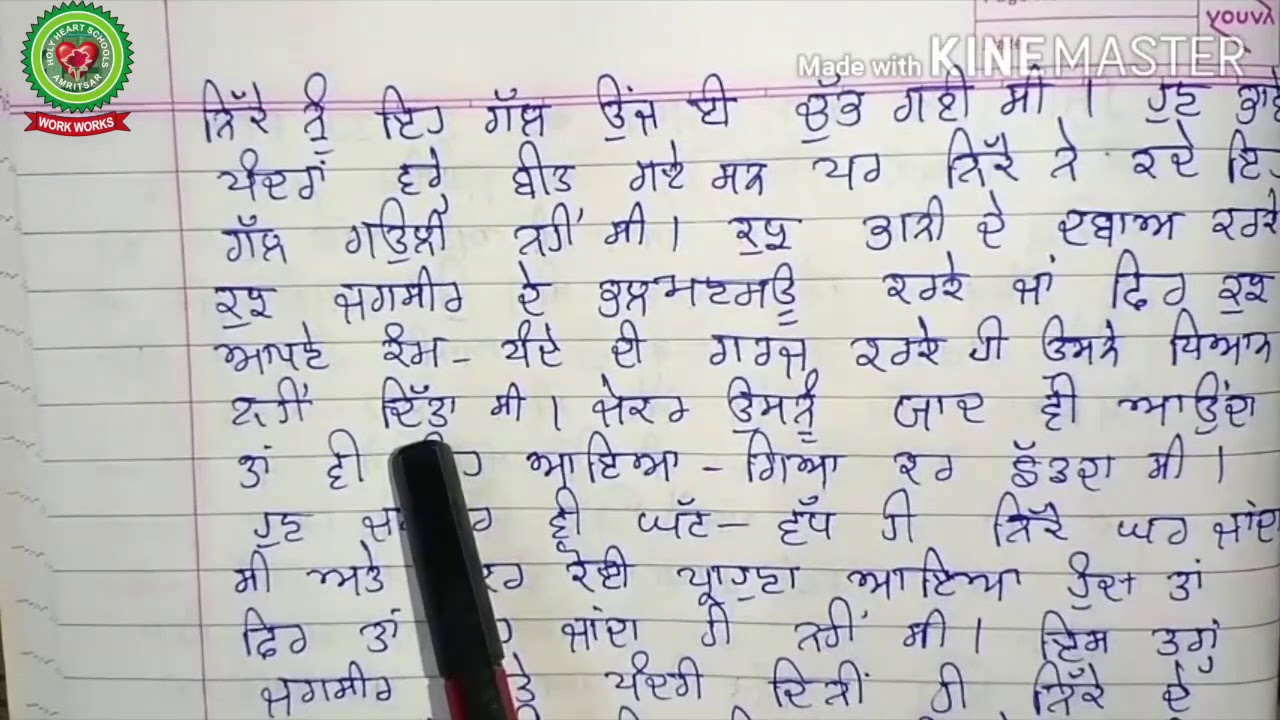 HOLY HEART SCHOOLS
AMRITSAR
WORK WORKS
youva
Made with KINEMASTER
ਨਿੱਕੇ ਨੂੰ ਇਹ ਗੱਲ ਉਂਜ ਈ ਚੁੱਭ ਗਈ ਸੀ । ਹੁਣ ਭਾਵੇਂ
ਪੰਦਰਾਂ ਵਰ੍ਹੇ ਬੀਤ ਗਏ ਸਨ ਪਰ ਨਿੱਕੇ ਨੇ ਕਦੇ ਇਹ
ਗੱਲ ਗਉਲੀ ਨਹੀਂ ਸੀ । ਕੁਝ ਭਾਨੀ ਦੇ ਦਬਾਅ ਕਰਕੇ
ਕੁਝ ਜਗਸੀਰ ਦੇ ਭਲਮਾਣਸਊ ਕਰਕੇ ਜਾਂ ਫਿਰ ਕੁਝ
ਆਪਣੇ ਕੰਮ-ਧੰਦੇ ਦੀ ਗਰਜ ਕਰਕੇ ਹੀ ਉਸਨੇ ਧਿਆਨ
ਨਹੀਂ ਦਿੱਤਾ ਸੀ । ਜੇਕਰ ਉਸਨੂੰ ਯਾਦ ਵੀ ਆਉਂਦਾ
ਤਾਂ ਵੀ ਆਇਆ-ਗਿਆ ਕਰ ਛੱਡਦਾ ਸੀ ।
ਹੁਣ ਵੀ ਘੱਟ-ਵੱਧ ਹੀ ਨਿੱਕੇ ਘਰ ਜਾਂਦਾ
ਸੀ ਅਤੇ ਕੋਈ ਪ੍ਰਾਹੁਣਾ ਆਇਆ ਹੁੰਦਾ ਤਾਂ
ਫਿਰ ਤਾਂ ਜਾਂਦਾ ਹੀ ਨਹੀਂ ਸੀ । ਇਸ ਤਰ੍ਹਾਂ
ਜਗਸੀਰ ਪੰਦਰੀ ਦਿਨੀਂ ਹੀ ਨਿੱਕੇ ਦੇ